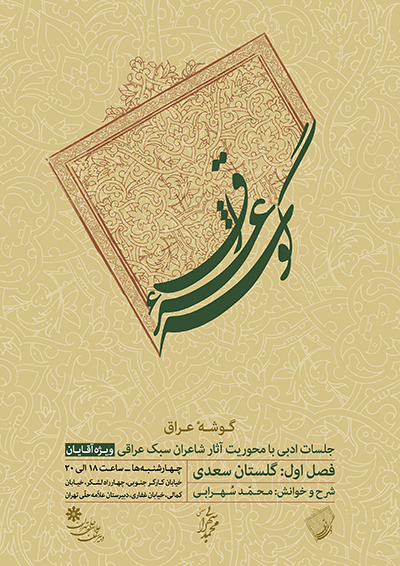 گوشهٔ عراق
گوشهٔ عراق
جلسات ادبی با محوریت آثار شاعران سبک عراقی ویژه آقایان
فصل اول: گلستان سعدی
شرح و خوانش: محمّد سُهرابی
چهارشنبه‌ها ـ ساعت ۱۸ الی ۲۰
خیابان کارگر جنوبی، چهارراه لشکر، خیابان
کمالی، خیابان غفاری، دبیرستان علامه حلّی تهران